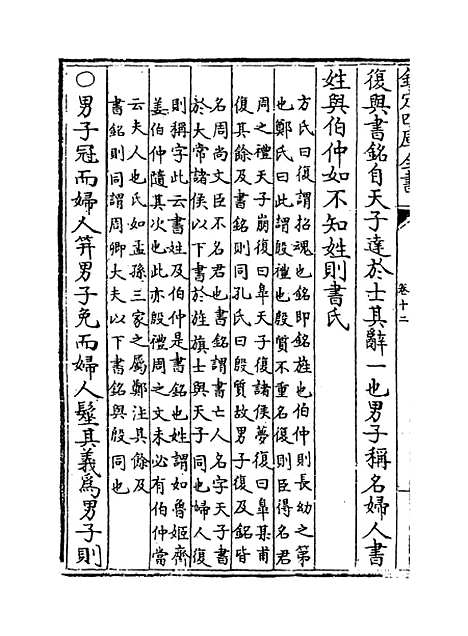 欽定四庫全書
卷十二
復與書銘自天子達於士其辭一也男子稱名婦人書
姓與伯仲如不知姓則書氏
方氏曰復謂招魂也銘即銘旌也伯仲則長幼之第
也鄭氏曰此謂殷禮也殷質不重名復則臣得名君
周之禮天子崩復曰皋天子復諸侯薨復曰皋某甫
復其餘及書銘則同孔氏曰殷質故男子復及銘皆
名周尚文臣不名君也書銘謂書亡人名字天子書
於大常諸侯以下書於旌旗士與天子同也婦人復
則稱字此云書姓及伯仲是書銘也姓謂如魯姬齊
姜伯仲隨其次也此亦殷禮周之文未必有伯仲當
云夫人也氏如孟孫三家之屬鄭注其餘及
書銘則同謂周卿大夫以下書銘與殷同也
○男子冠而婦人笄男子免而婦人髽其義為男子則